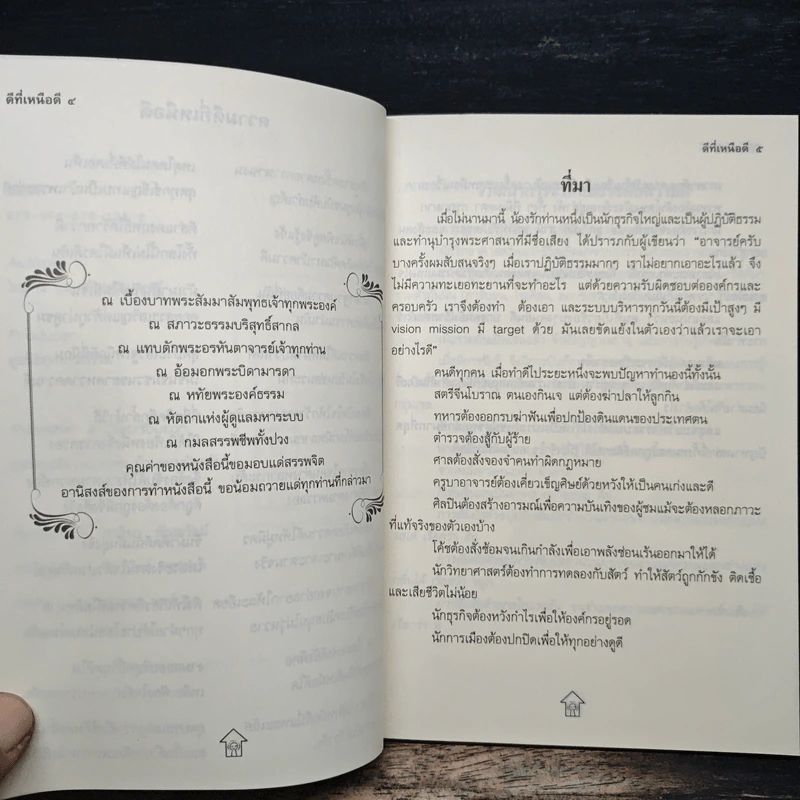 ดีที่เหนือดี ๔
ณ เบื้องบาทพระสัมมาสัมพุทธเจ้าทุกพระองค์
ณ สภาวะธรรมบริสุทธิ์สากล
ณ แทบตักพระอรหันตาจารย์เจ้าทุกท่าน
ณ อ้อมอกพระบิดามารดา
ณ หทัยพระองค์ธรรม
ณ หัตถาแห่งผู้ดูแลมหาระบบ
ณ กมลสรรพชีพทั้งปวง
คุณค่าของหนังสือนี้ขอมอบแด่สรรพจิต
อานิสงส์ของการทำหนังสือนี้ ขอน้อมถวายแด่ทุกท่านที่กล่าวมา
ดีที่เหนือดี ๕
ที่มา
เมื่อไม่นานมานี้ น้องรักท่านหนึ่งเป็นนักธุรกิจใหญ่และเป็นผู้ปฏิบัติธรรม
และทำนุบำรุงพระศาสนาที่มีชื่อเสียง ได้ปรารภกับผู้เขียนว่า “อาจารย์ครับ
บางครั้งผมสับสนจริงๆ เมื่อเราปฏิบัติธรรมมากๆ เราไม่อยากเอาอะไรแล้ว จึง
ไม่มีความทะเยอทะยานที่จะทำอะไร แต่ด้วยความรับผิดชอบต่อองค์กรและ
ครอบครัว เราจึงต้องทำ ต้องเอา และระบบบริหารทุกวันนี้ต้องมีเป้าสูงๆ มี
vision mission มี target ด้วย มันเลยขัดแย้งในตัวเองว่าแล้วเราจะเอา
อย่างไรดี”
คนดีทุกคน เมื่อทำดีไประยะหนึ่งจะพบปัญหาทำนองนี้ทั้งนั้น
สตรีจีนโบราณ ตนเองกินเจ แต่ต้องฆ่าปลาให้ลูกกิน
ทหารต้องออกรบฆ่าฟันเพื่อปกป้องดินแดนของประเทศตน
ตำรวจต้องสู้กับผู้ร้าย
ศาลต้องสั่งจองจำคนทำผิดกฎหมาย
ครูบาอาจารย์ต้องเคี่ยวเข็ญศิษย์ด้วยหวังให้เป็นคนเก่งและดี
ศิลปินต้องสร้างอารมณ์เพื่อความบันเทิงของผู้ชมแม้จะต้องหลอกภาวะ
ที่แท้จริงของตัวเองบ้าง
โค้ชต้องสั่งซ้อมจนเกินกำลังเพื่อเอาพลังซ่อนเร้นออกมาให้ได้
นักวิทยาศาสตร์ต้องทำการทดลองกับสัตว์ ทำให้สัตว์ถูกกักขัง ติดเชื้อ
และเสียชีวิตไม่น้อย
นักธุรกิจต้องหวังกำไรเพื่อให้องค์กรอยู่รอด
นักการเมืองต้องปกปิดเพื่อให้ทุกอย่างดูดี